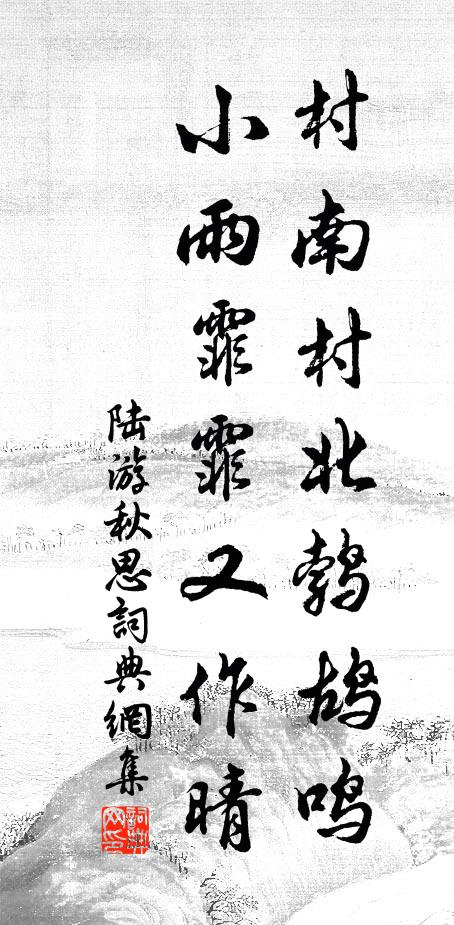 村南村北鹁鸪鸣
小雨霏霏又作晴
陆游秋思詞典網集